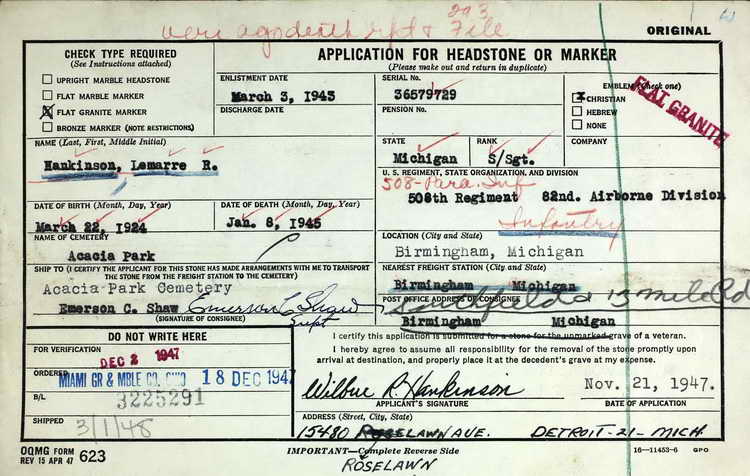 293
File
ORIGINAL
CHECK TYPE REQUIRED
(See Instructions attached)
UPRIGHT MARBLE HEADSTONE
FLAT MARBLE MARKER
X FLAT GRANITE MARKER
BRONZE MARKER (NOTE RESTRICTIONS)
APPLICATION FOR HEADSTONE OR MARKER
(Please make out and return in duplicate)
ENLISTMENT DATE
March 3, 1943
DISCHARGE DATE
SERIAL No.
36579729
PENSION No.
EMBLEM (Check one)
X CHRISTIAN
HEBREW
NONE
FLAT GRANITE
NAME (Last, First, Middle Initial)
Hankinson, Lemarre R.
STATE
Michigan
RANK
S/Sgt.
COMPANY
U. S. REGIMENT, STATE ORGANIZATION, AND DIVISION
508-Para. Inf
508th Regiment 82nd. Airborne Division
Infantry
DATE OF BIRTH (Month, Day, Year)
March 22, 1924
DATE OF DEATH (Month, Day, Year)
Jan. 8, 1945
NAME OF CEMETERY
Acacia Park
LOCATION (City and State)
Birmingham, Michigan
SHIP TO (I CERTIFY THE APPLICANT FOR THIS STONE HAS MADE ARRANGEMENTS WITH ME TO TRANSPORT
THE STONE FROM THE FREIGHT STATION TO THE CEMETERY)
Acacia Park Cemetery
Emerson C. Shaw Emerson C Shaw
supt
(SIGNATURE OF CONSIGNEE)
NEAREST FREIGHT STATION (City and State)
Birmingham Michigan
POST OFFICE ADDRESS OF CONSIGNEE
Southfield & 13 mile Rd
Birmingham Michigan
DO NOT WRITE HERE
FOR VERIFICATION
DEC 2 1947
ORDERED
MIAMI GR & MBLE CO. OHIO 18 DEC 1947
B/L
3225291
SHIPPED
3/1/48
I certify this application is submitted for a stone for the unmarked grave of a veteran.
I hereby agree to assume all responsibility for the removal of the stone promptly upon
arrival at destination, and properly place it at the decedent's grave at my expense.
Wilbur R. Hankinson
APPLICANT'S SIGNATURE
Nov. 21, 1947.
DATE OF APPLICATION
ADDRESS (Street, City, State)
15480 ROSELAWN AVE. DETROIT-21-MICH.
OQMG FORM
REV 15 APR 47 623
IMPORTANT—Complete Reverse Side
16—11453-6 GPO
ROSELAWN